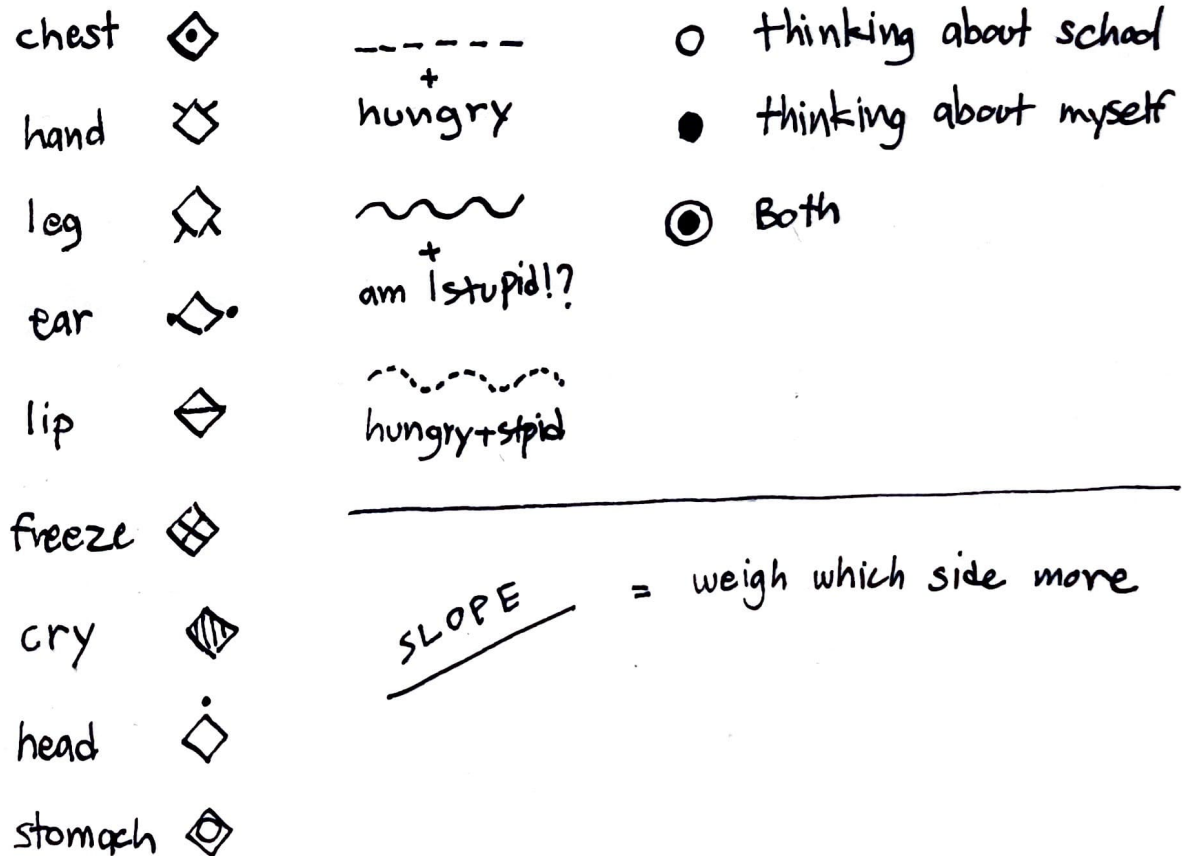 chest
hand
leg
ear
lip
freeze
cry
head
stomach
+
hungry
+
am I stupid!?
hungry+stpid
thinking about school
thinking about myself
Both
SLOPE = weigh which side more